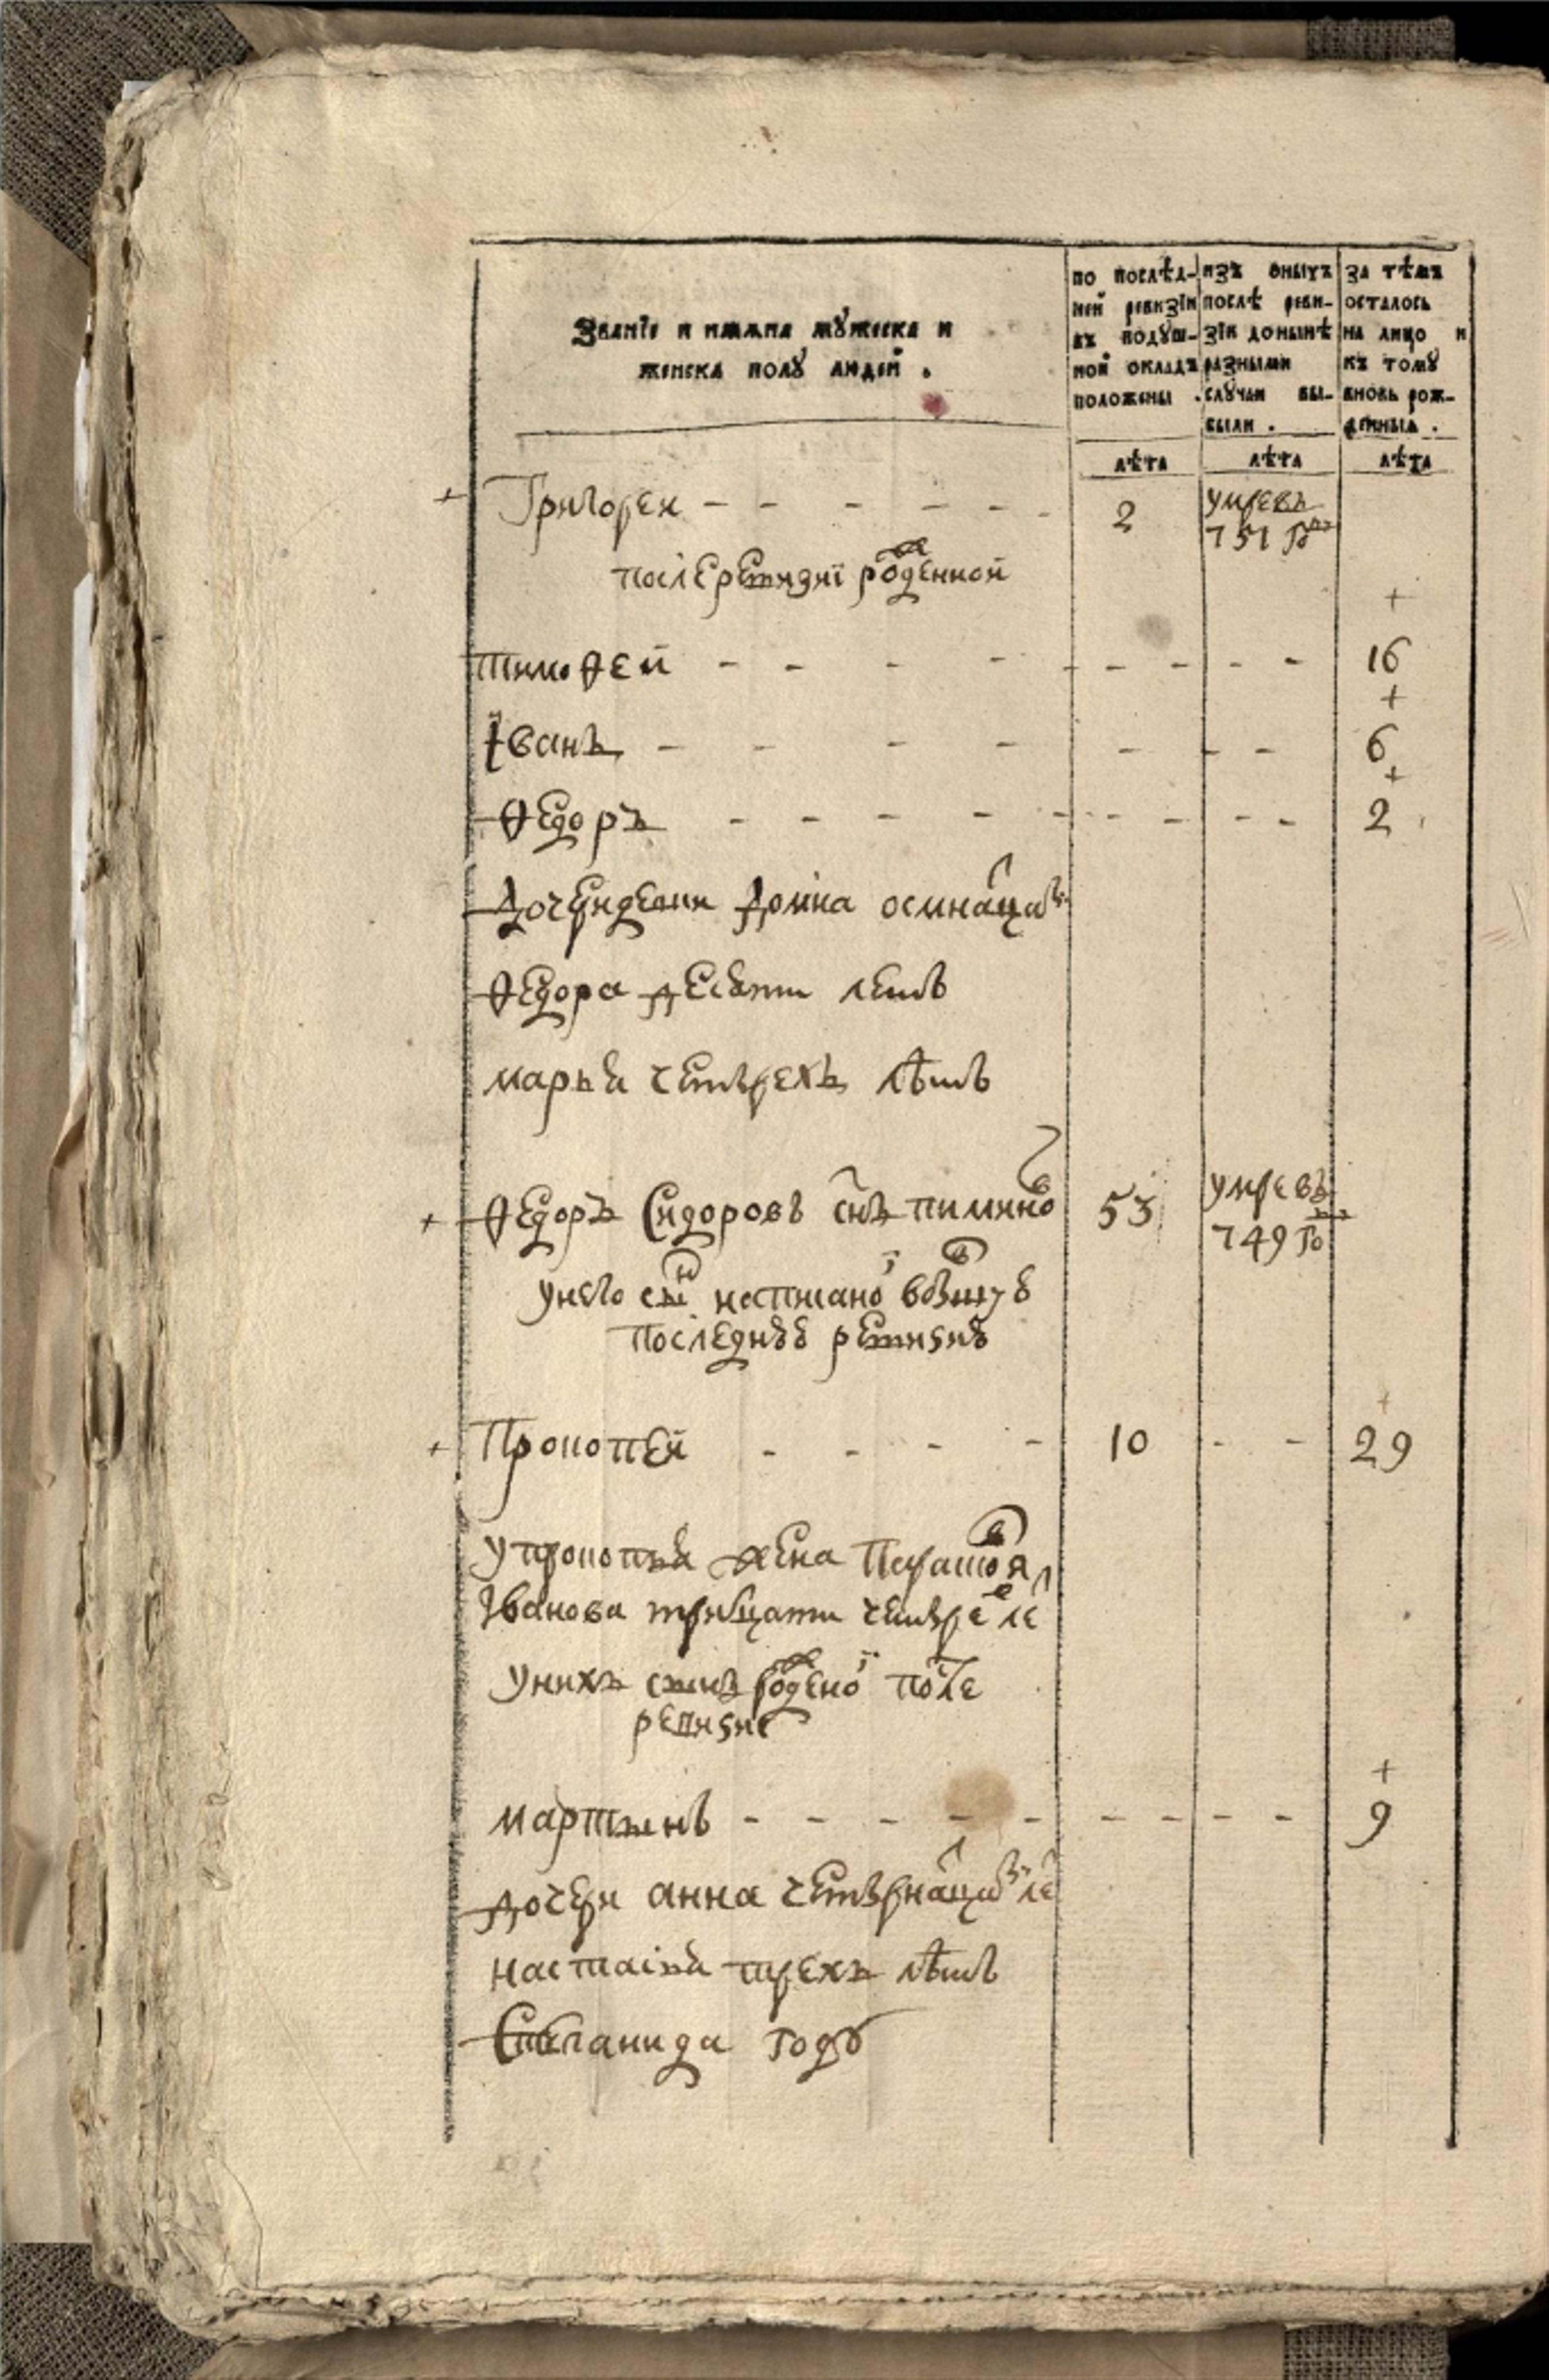 Званїе и имѧна мꙋжеска и
женска полꙋ людей .
по послѣд-
ней ревизїи
въ подꙋш-
ной окладъ
положены .
изъ оныхъ
послѣ реви-
зїи донынѣ
разными
слꙋчаи вы-
были .
за тѣмъ
осталось
на лицо и
къ томꙋ
вновь рож-
денныѧ .
лѣта лѣта лѣта
+ Григореи - - - - - - 2 умре въ
751 го
после ревизиї роденной
ж
+
Тимоѳей - - - - - - - - - 16
+
Іванъ - - - - - - - 6
+
Ѳедоръ - - - - - - - - - - 2
Дочери девки Домна осмнацат
Ѳедора десяти летъ
марья четырехъ лѣтъ
+ Ѳедоръ Сидоровъ снъ пиминовъ 53 умре въ
749 го
у него сын написаной въ
последнѣѣ ревизиѣ
+
+ Прокопей - - - - 10 - - 29
у прокопья жена Парасковя
Іванова тритцати четыре ле
у нихъ сынъ роденой после
ж
ревизиї
+
мартынъ - - - - - - - - - 9
дочери анна четырнацат ле
настасья трехъ лѣтъ
Степанида году